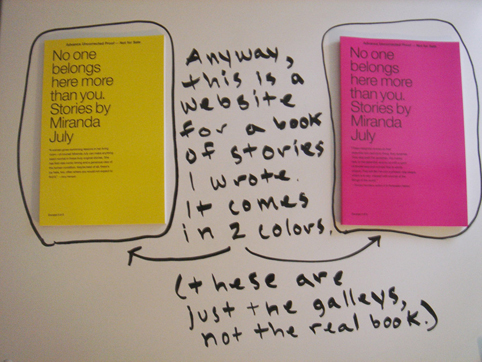 Advance Uncorrected Proof — Not for Sale
No one
belongs
here more
than you.
Stories by
Miranda
July
Anyway,
this is a
website
for a book
of stories
I wrote.
It comes
in 2 colors.
Advance Uncorrected Proof — Not for Sale
No one
belongs
here more
than you.
Stories by
Miranda
July
(these are
just the galleys,
not the real book.)